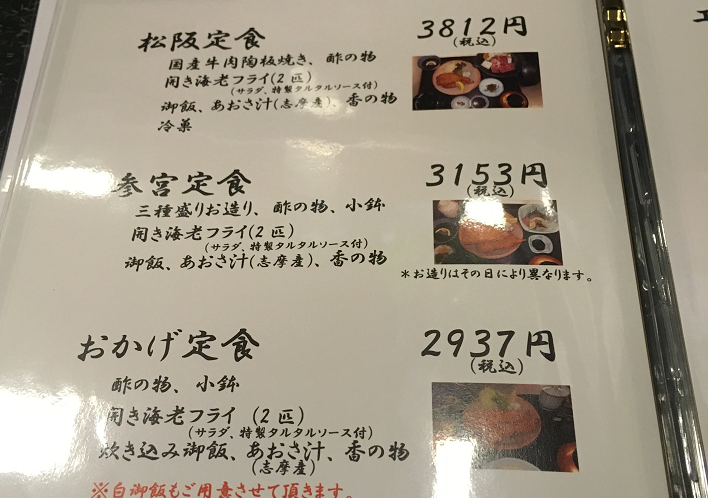 松阪定食 3812円
(税込)
国産牛肉陶板焼き、酢の物
開き海老フライ(2匹)
(サラダ、特製タルタルソース付)
御飯、あおさ汁(志摩産)、香の物
冷菓
参宮定食 3153円
(税込)
三種盛りお造り、酢の物、小鉢
開き海老フライ(2匹)
(サラダ、特製タルタルソース付)
御飯、あおさ汁(志摩産)、香の物
＊お造りはその日により異なります。
おかげ定食 2937円
(税込)
酢の物、小鉢
開き海老フライ (2匹)
(サラダ、特製タルタルソース付)
炊き込み御飯、あおさ汁、香の物
(志摩産)
※白御飯もご用意させて頂きます。